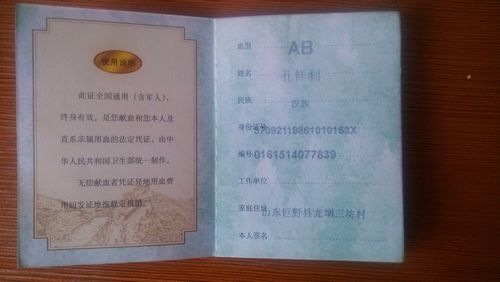 使用说明
此证全国通用（含军人），
终身有效。是您献血和您本人及
直系亲属用血的法定凭证。由中
华人民共和国卫生部统一制作。
无偿献血者凭证异地用血费
用回发证地按规定报销。
血型 AB
姓名 孔祥利
民族 汉族
身份证号
编号 0161514077839
工作单位
家庭住址 山东巨野县龙堌三坊村
本人签名